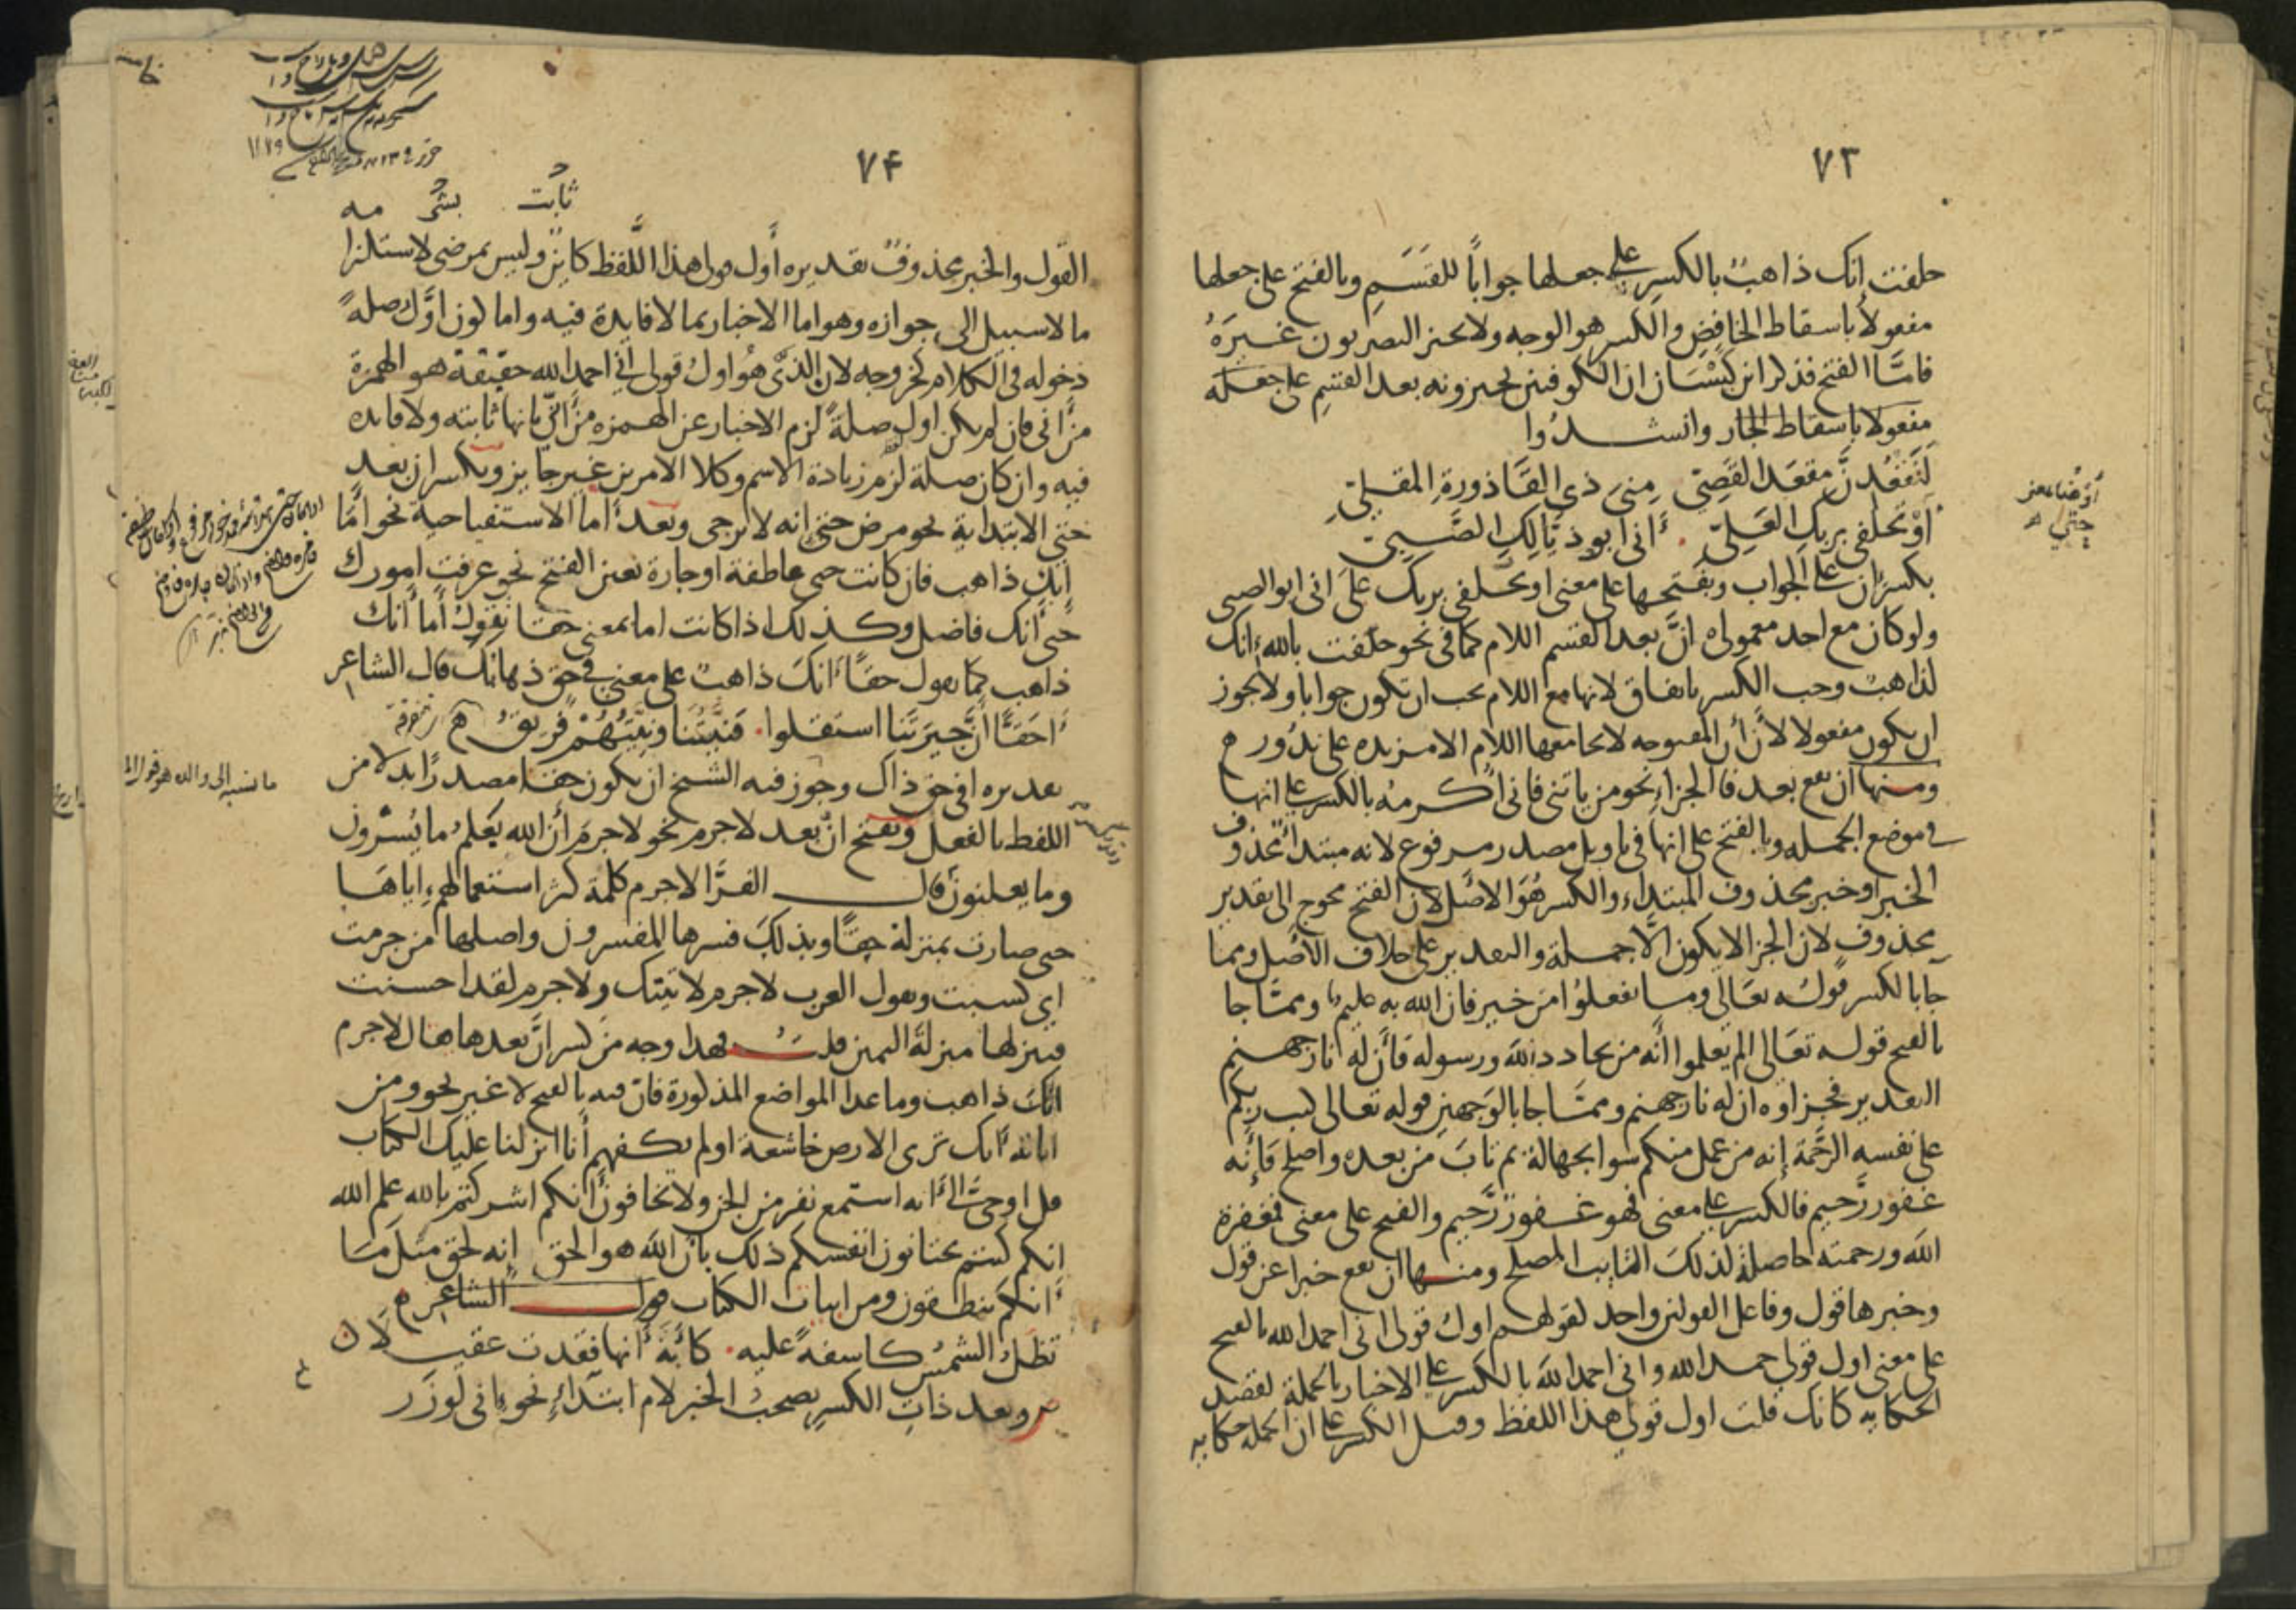 ٧٣
حلفت إنك ذاهبٌ بالكسرِ على جعلها جواباً للقَسَمِ وبالفتح على جعلها
مفعولاً باسقاط الخافِضِ والكسر هو الوجه ولا يجيز البصريون غيرَهُ
فامَّا الفتح فذكر ابن كَيْسَان ان الكوفيين يجيزونه بعد القسَمِ على جعله
مفعولا باسقاط الجار وانشدُوا
لَتَقْعُدنَّ مقعَد القَصِيّ مِنّي ذي القَاذورة المقليّ
أوْ تَحلفي بربك العَليّ أني ابو ذيّالِكِ الصَّبيّ
بكسر ان على الجواب وبفَتحها على معنى او تحلفي بربك على اني ابو الصبي
ولو كان مع احد معموله انَّ بعد القسم اللام كما في نحو حلفت بالله إنك
لذاهبٌ وجب الكسر باتفاق لانها مع اللام يجب ان تكون جوابا ولا يجوز
ان يكون مفعولا لأن أن المفتوحه لا تجامعها اللام الا مزيده على ندُور ه
ومنها ان تقع بعد فا الجزاءِ نحو من ياتني فاني اكرمهُ بالكسر على انها
في موضع الجمله وبالفتح على انها في تاويل مصدر مرفوع لانه مبتدأ محذوف
الخبر او خبر محذوف المبتداء والكسر هُوَ الاصْل لان الفتح محوج الى تقدير
محذوفٍ لان الجزا لا يكون الَّا جملة والتقدير على خلاف الاصْل ومما
جا بالكسر قولُه تعَالى وما تفعلُوا من خير فان الله به عليم ومما جا
بالفتح قوله تعَالى الم يعلموا أنَّه من يحادد الله ورسوله فأَن له نار جهنم
التقدير فجزاوه ان له نار جهنم ومما جا بالوَجهين قوله تعالى كتب ربكم
على نفسه الرَّحمة إنه من عمل منكم سوا بجهالة ثم تابَ من بعده واصلح فَإِنَّه
غفور رَّحيم فالكسر على معنى فهو غفورٌ رَّحيم والفتح على معنى فمغفرة
الله ورحمته حاصلة لذلك التايب المصلح ومنها ان تقع خبرا عن قول
وخبرها قول وفاعل القولين واحد لقولهم اولُ قولي اني احمد الله بالفتح
على معنى اول قولي حمد الله واني احمد الله بالكسر على الاخبار بالجملة لقصد
الحكايه كانك قلت اول قولي هذا اللفظ وقيل الكسر على ان الجمله حكايه
أو ضنا معنى
حتى ه
٧۴
ثابت بشئ مه
القول والخبر محذوفٌ تقديره أول قولي هذا اللَّفظ كاين وليس بمرضي لاستلزا
ما لا سبيل الى جوازه وهو اما الاخبار بما لا فايدة فيه واما كون اوَّل صلهً
دخوله في الكلام كخروجه لان الذي هُو اولُ قولي إني احمد الله حقيقة هو الهمزة
من إني فان لم يكن اول صلةً لزم الاخبار عن الهمزه من إني بانها ثابته ولا فايده
فيه وان كان صلة لزم زيادة الاسم وكلا الامرين غير جايز وبكسر ان بعد
حتي الابتدائية نحو مرض حتى إنه لا يرجى وبعد أما الاستفتاحية نحو امَّا
إنك ذاهب فان كانت حتى عاطفة او جارة تعين الفتح نحو عرفت امورك
حتى أنك فاضل وكذلك اذا كانت اما بمعنى حقا تقول أما أنك
ذاهب كما يقول حقاً أنكَ ذاهب على معنى في حق ذهابك قال الشاعر
أحَقًّا أنَّ جيرَتَنا استقلوا فنيّتُنا ونيّتُهُمْ فريقُ ه
تقديره افي حق ذاك وجوز فيه الشيخ ان يكون حقا مصدرًا بدلا من
اللفظ بالفعل وتفتح انّ بعد لا جرم نحو لا جرم أن الله يَعلمُ ما يُسرون
وما يعلنون قال الفرَّا لا جرم كلمة كثر استعمالهم اياها
حتى صارت بمنزلة حقاً وبذلك فسرها المفسرون واصلها من جرمت
اي كسبت وتقول العرب لا جرم لاتينك ولا جرم لقد احسنت
فينزلها منزلة اليمين قلتُ فهذا وجه من كسر انَّ بعدها فقال لا جرم
انكَ ذاهب وما عدا المواضع المذكورة فانّ فيه بالفتح لا غير نحو ومن
اياته أنك ترى الارض خاشعة اولم يكفهم أنا انزلنا عليك الكتاب
قل اوحي الي أنه استمع نفر من الجن ولا تخافون أنكم اشركتم بالله علم الله
انكم كنتم تختانون انفسكم ذلك بان الله هو الحق إنه لحق مثل مَا
أنكم تنطقون ومن ابيات الكتاب قول الشاعر ه
تظَلُ الشمسُ كاسفةً عليه كآبَةَ أنها فقدت عقيلا لان
ص وبعد ذاتِ الكسرِ تصحبُ الخبر لام ابتداءٍ نحوُ إني لوزَر
ما نسبه الى والده هو قول
١١٧٩